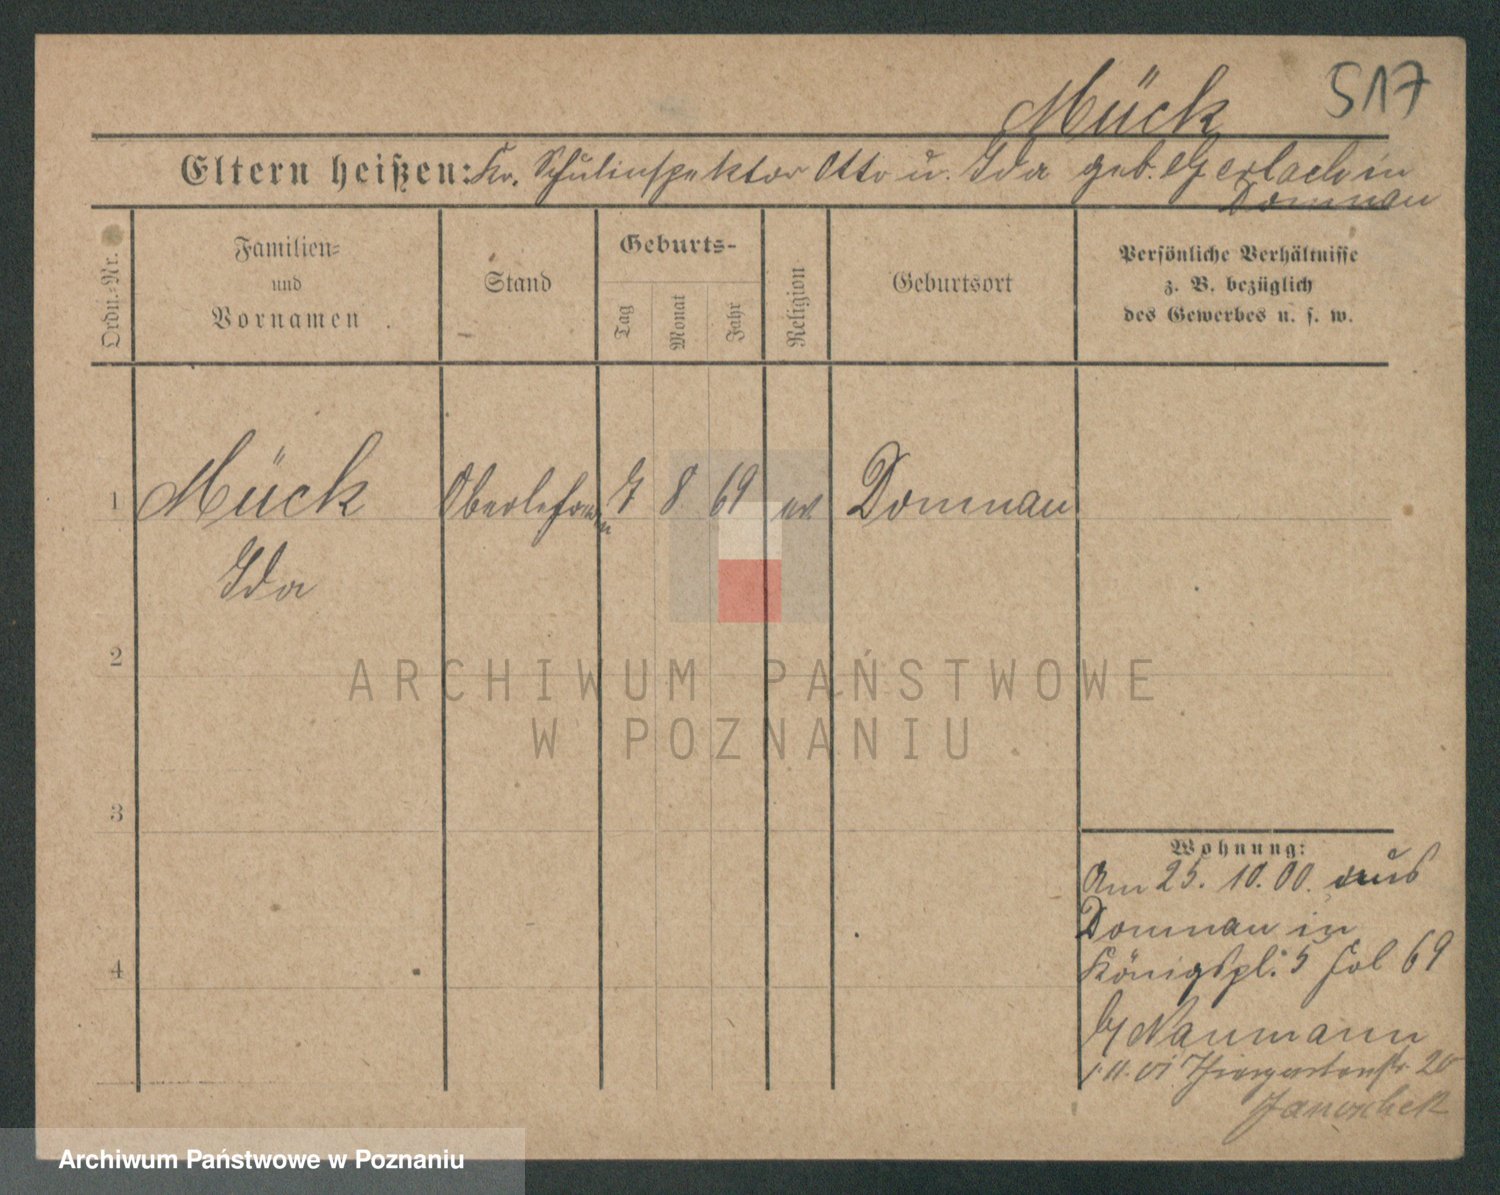 517
Mück
Eltern heißen: Kr. Schulinspektor Otto u. Ida geb. Gerlach in
Domnau
Ordn.-Nr.
Familien-
und
Vornamen
Stand
Geburts-
Tag
Monat
Jahr
Religion
Geburtsort
Persönliche Verhältnisse
z. B. bezüglich
des Gewerbes u. s. w.
1
Mück
Ida
7
8
69
ev.
Domnau
2
3
4
Wohnung:
Am 25. 10. 00. aus
Domnau in
Königspl. 5 Fol 69
b/ Naumann
1.11.01 Thiergartenstr 20
ARCHIWUM PAŃSTWOWE
W POZNANIU
Archiwum Państwowe w Poznaniu